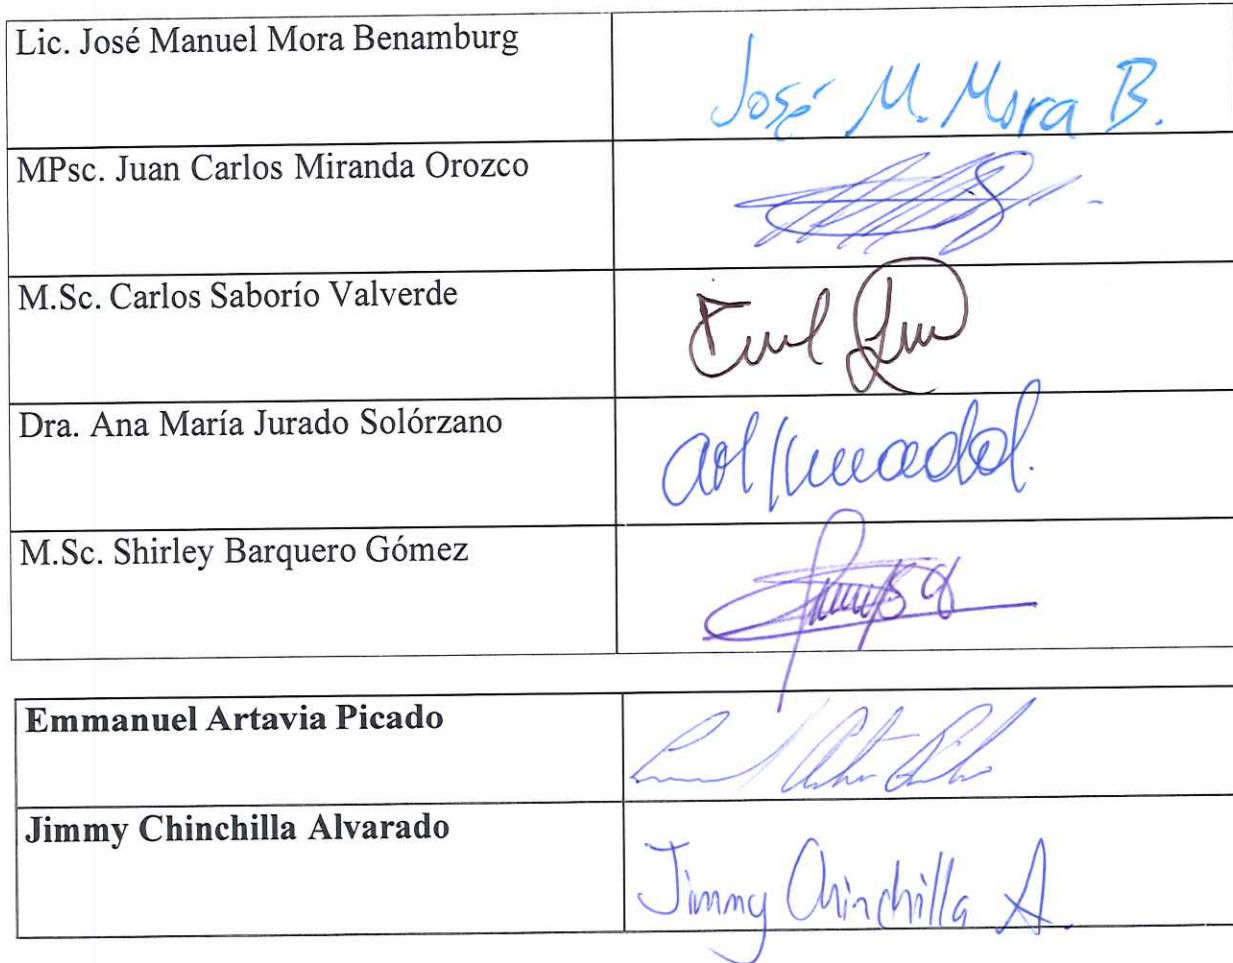 Lic. José Manuel Mora Benamburg
José M. Mora B.
MPsc. Juan Carlos Miranda Orozco
M.Sc. Carlos Saborío Valverde
Dra. Ana María Jurado Solórzano
M.Sc. Shirley Barquero Gómez
Emmanuel Artavia Picado
Jimmy Chinchilla Alvarado
Jimmy Chinchilla A.